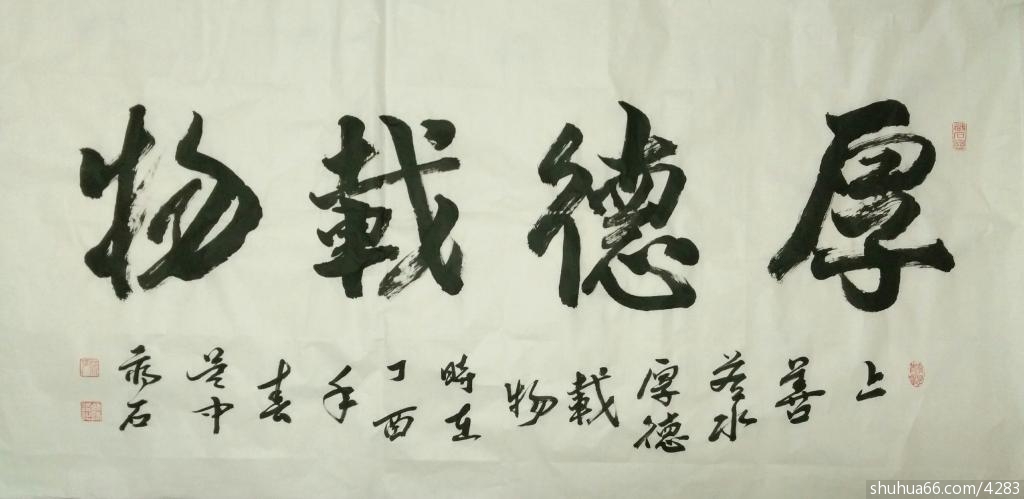 厚德載物
上善若水厚德載物時在丁酉年春吴中石
shuhua66.com/4283